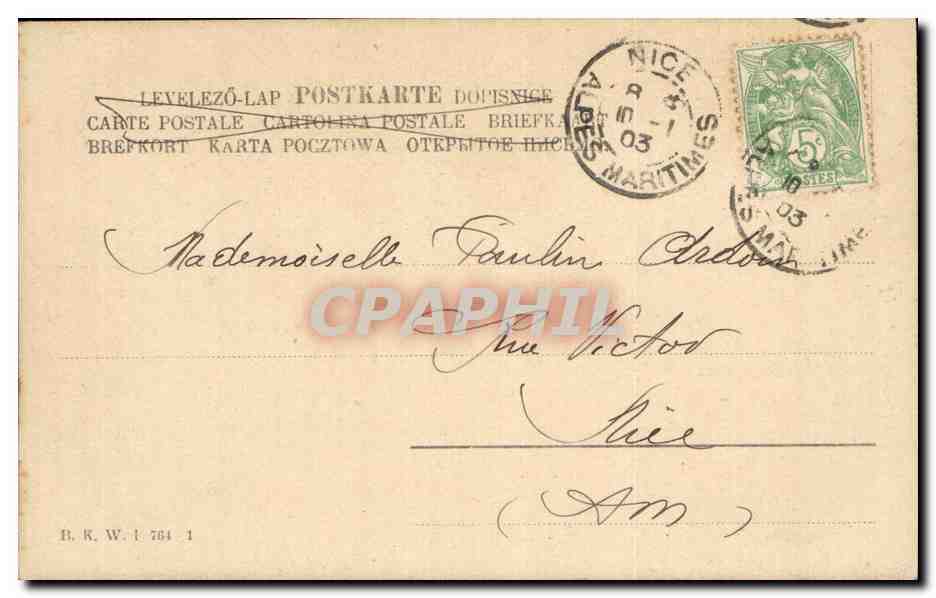 LEVELEZŐ-LAP POSTKARTE DOPISNICE
CARTE POSTALE CARTOLINA POSTALE BRIEFKAART
BREFKORT KARTA POCZTOWA ОТКРЫТОЕ ПИСЬМО
NICE
ALPES MARITIMES
03
5c
POSTES
10
03
Mademoiselle Paulin Ardoin
CPAPHIL
Rue Victor
Nice
(Am)
B. K. W. I 764 1